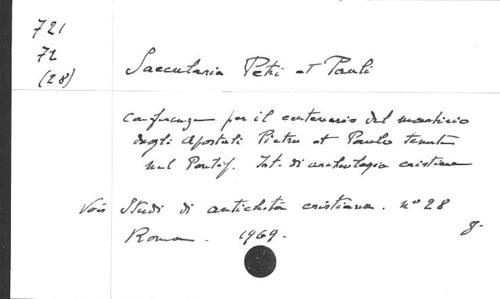 721
72
(28)
Saecularia Petri et Pauli
Conferenze per il centenario del martirio
degli Apostoli Pietro et Paulo tenute
nel Pontif. Ist. di archeologia cristiana
Voir Studi di antichità cristiana. n° 28
Roma. 1969.